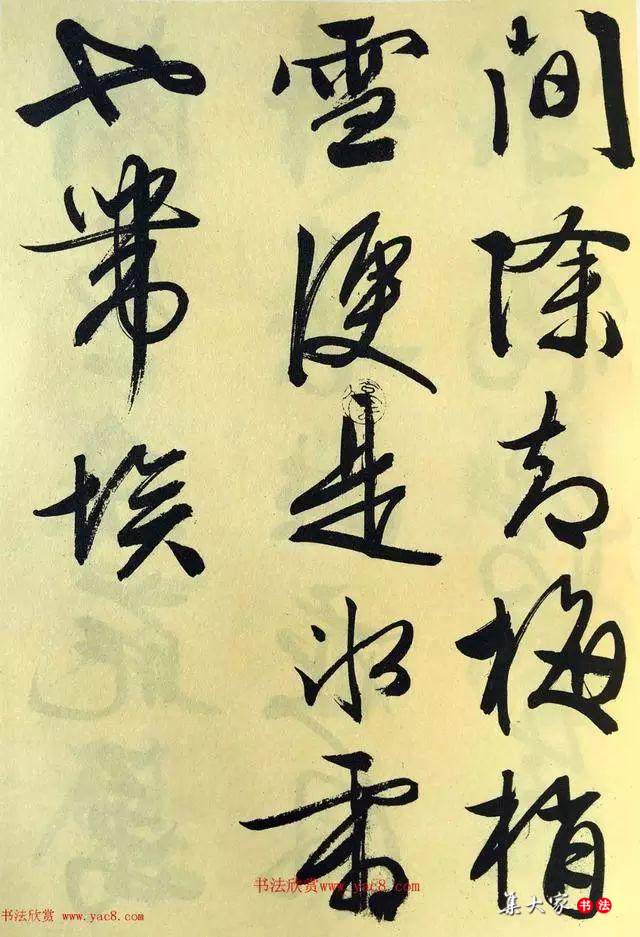 間除却梅梢
雪便是冰霜
也帶埃
书法欣赏 www.yac8.com
书法欣赏www.yac8.com
集大家书法